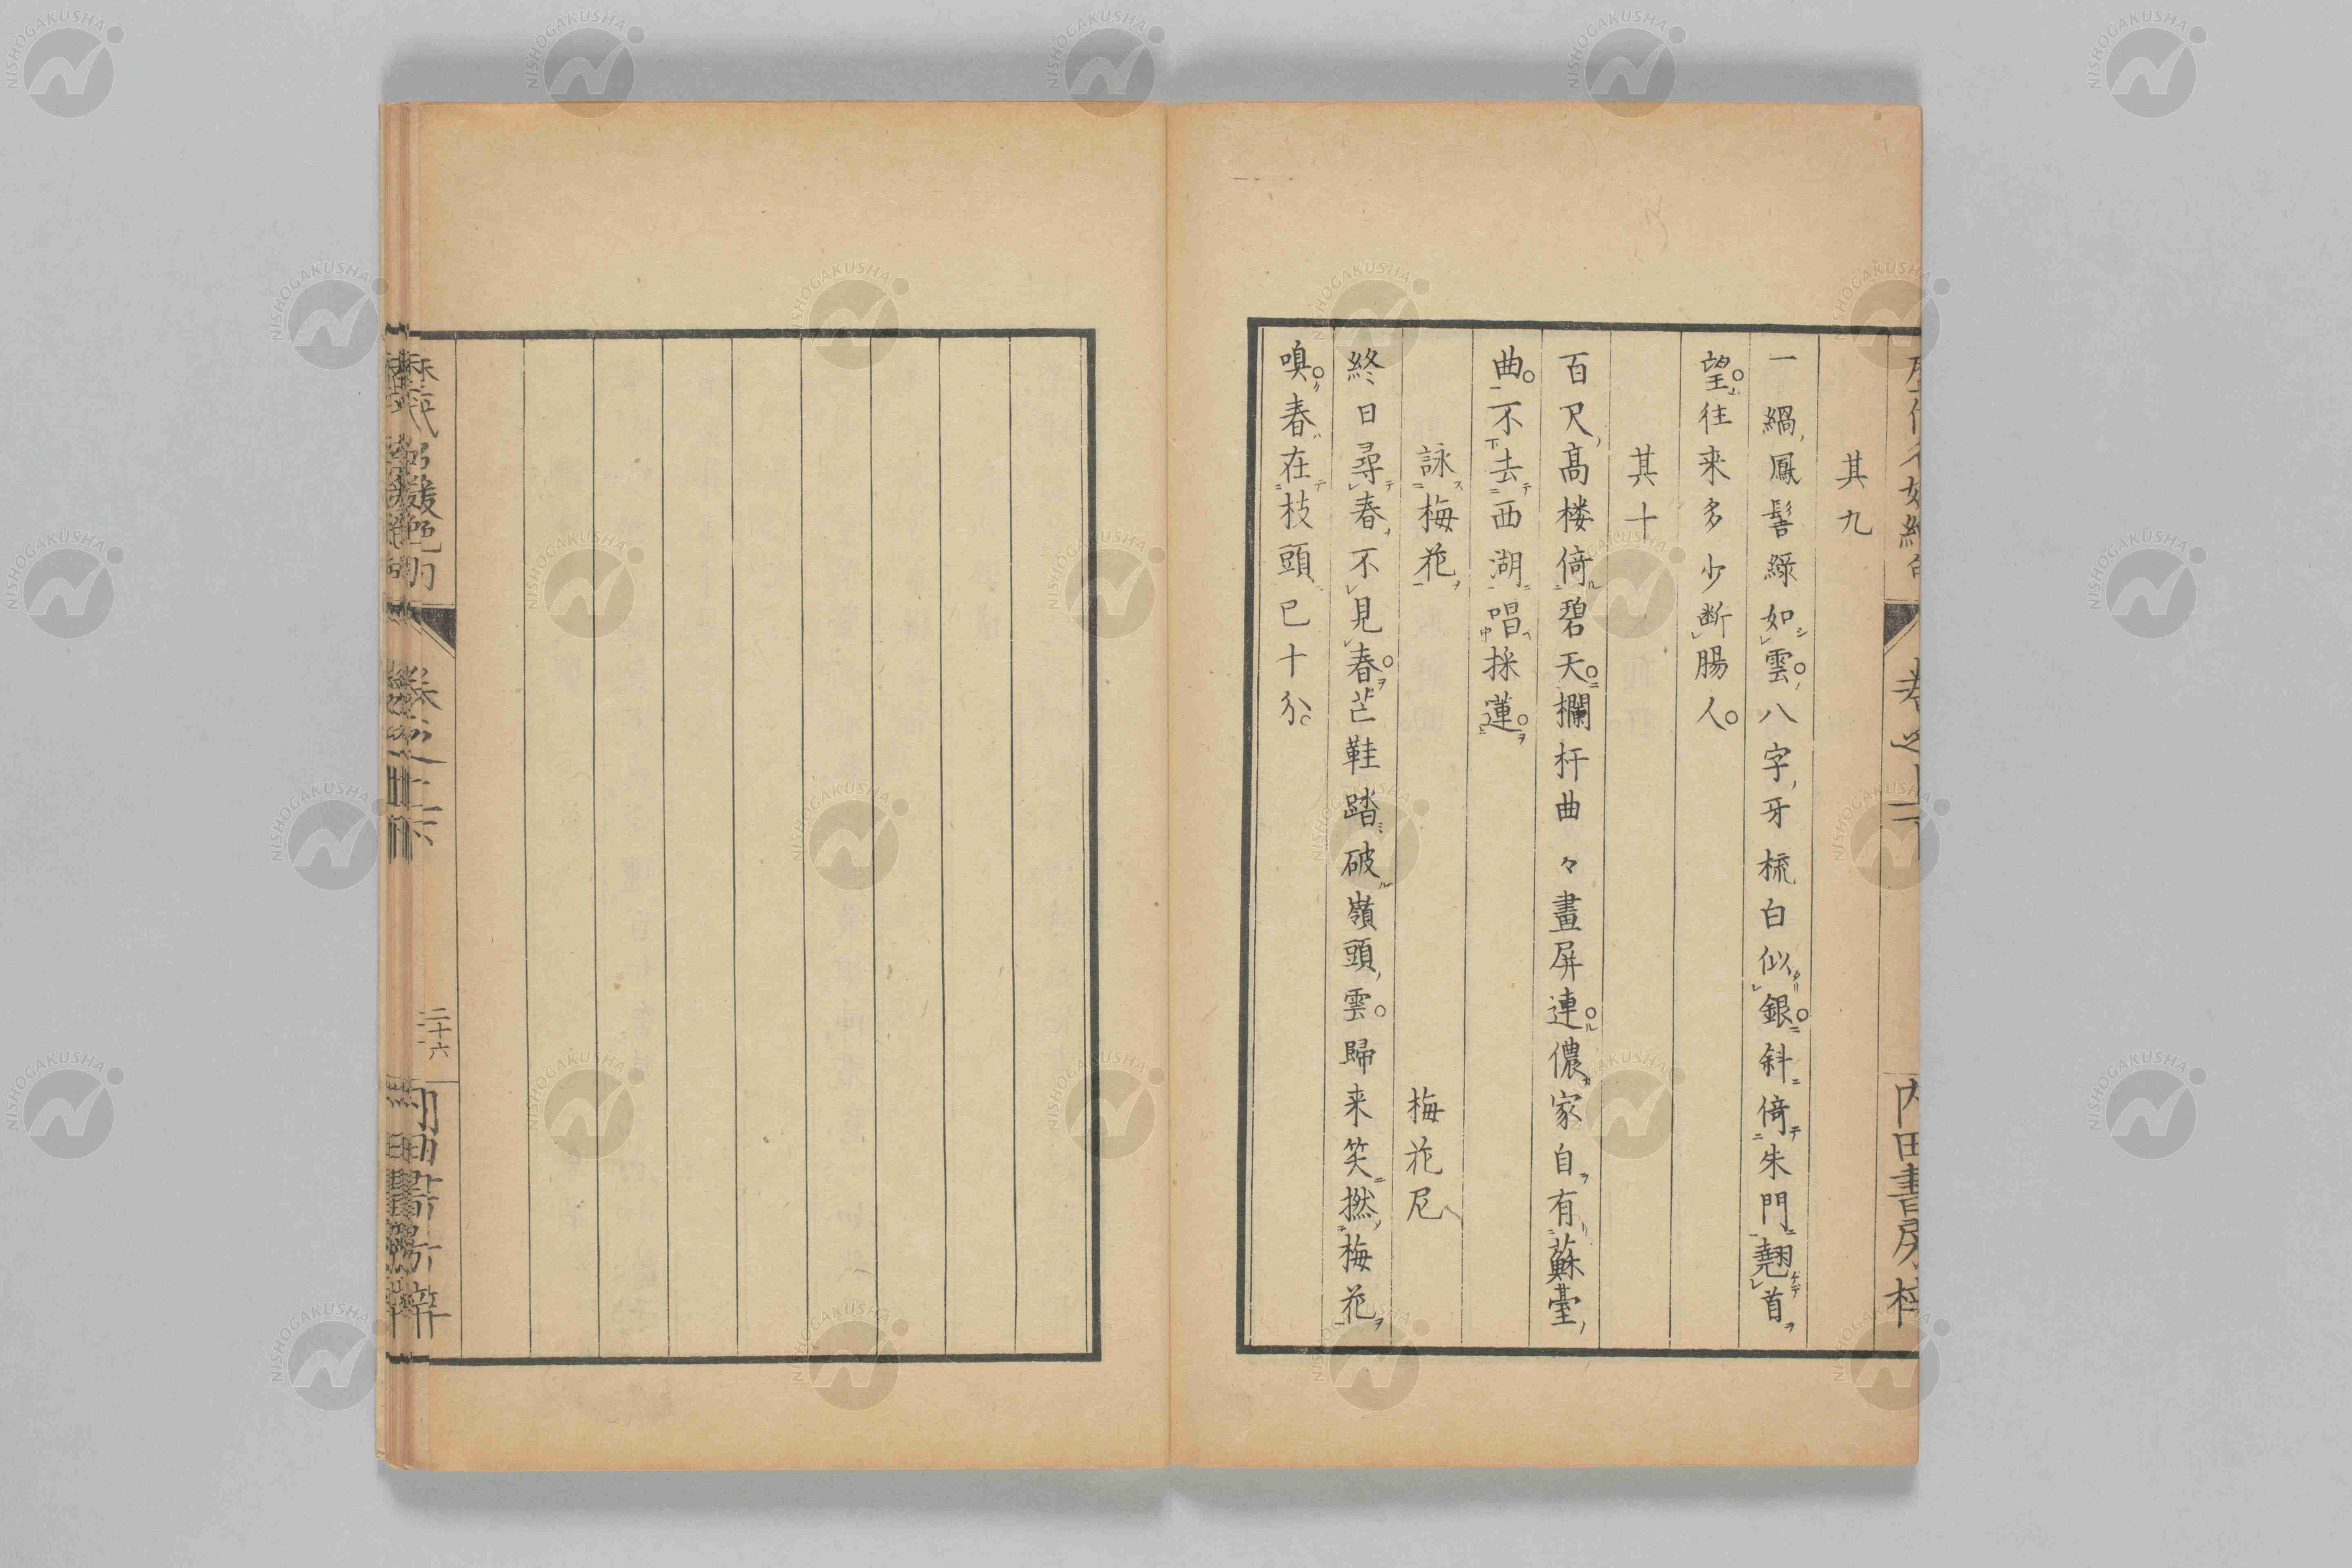 其九
一緺鳳髻緑如雲八字牙梳白似銀斜倚朱門翹首
望往来多少断腸人
其十
百尺高楼倚碧天欄杆曲々畫屏連儂家自有蘇臺
曲不去西湖唱採蓮
詠梅花 梅花尼
終日尋春不見春芒鞋踏破嶺頭雲歸来笑撚梅花
嗅春在枝頭已十分
内田書房梓
二十六
NISHOGAKUSHA